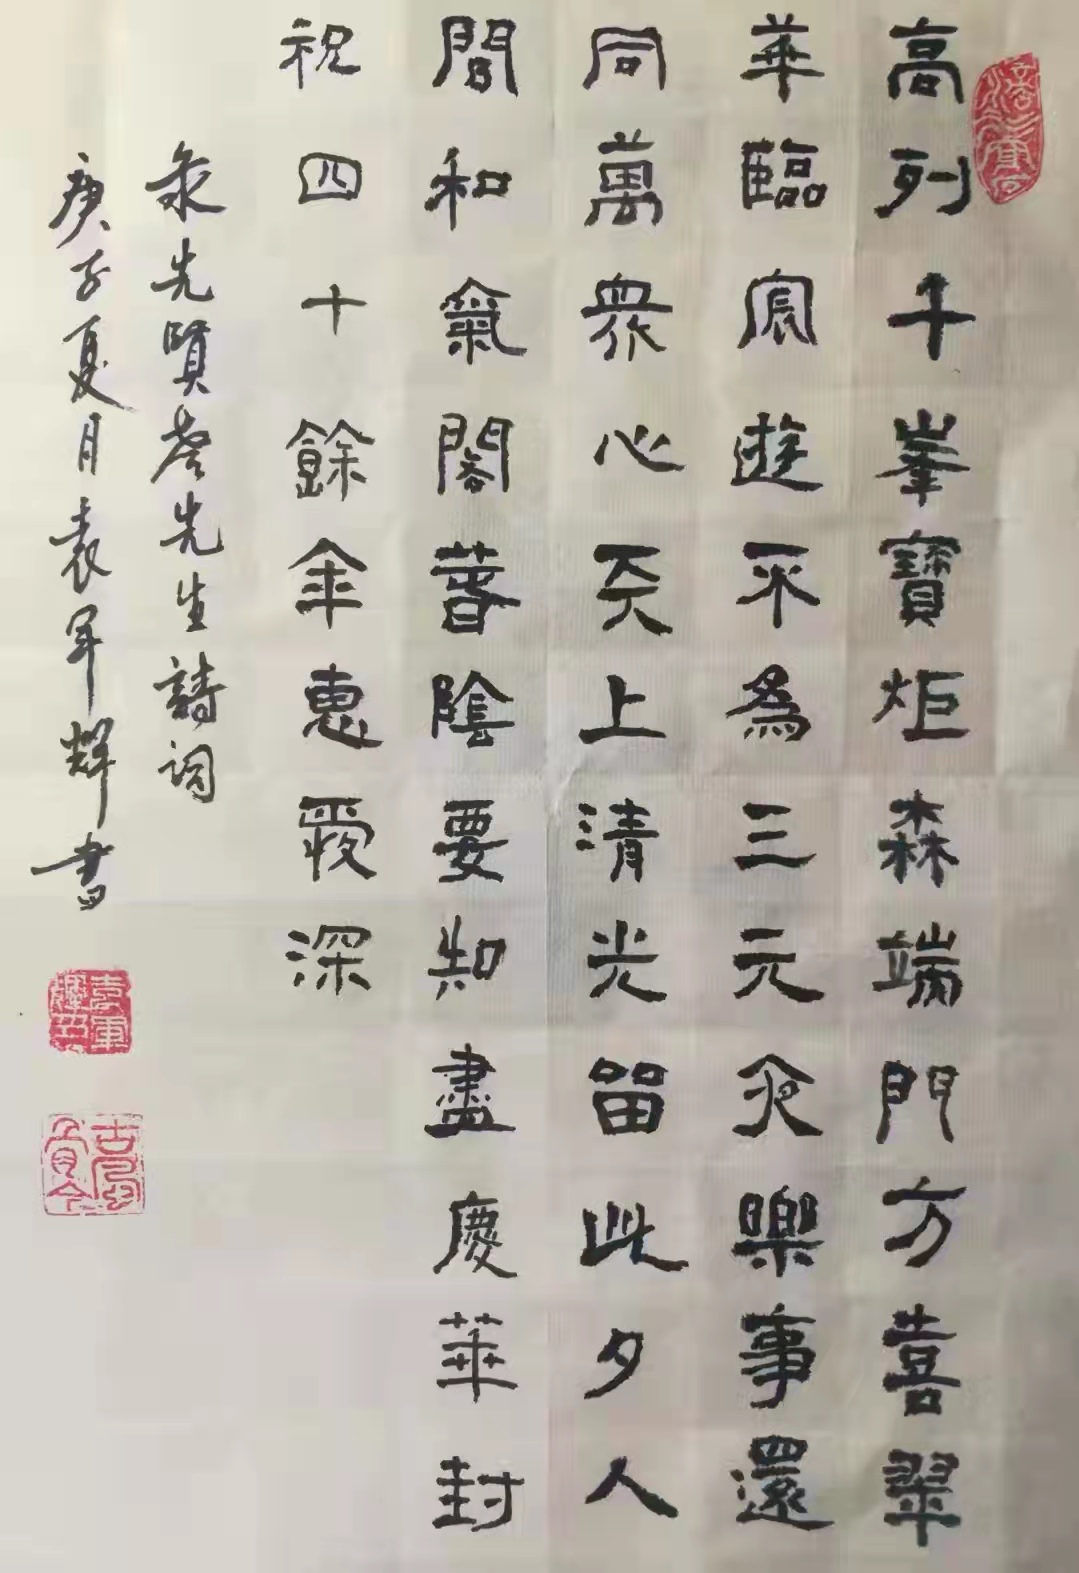 高列千峯寶炬森端門方喜翠
華臨宸遊不為三元夜樂事還
同萬衆心天上清光留此夕人
間和氣閣春陰要知盡慶華封
祝四十餘年惠愛深
录先賢詹先生詩詞
庚子夏月袁军辉書